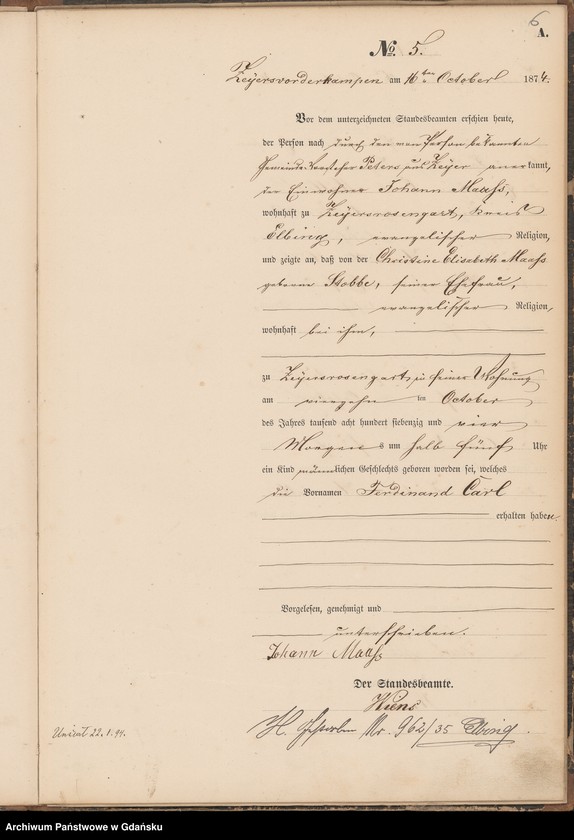 6
A.
No. 5.
Zeyersvorderkampen am 16 ten October 1874.
Vor dem unterzeichneten Standesbeamten erschien heute,
der Person nach durch den von Person bekannten
Gemeinde-Vorsteher Peters aus Zeyer anerkannt,
der Einwohner Johann Maass,
wohnhaft zu Zeyersrosengart, Kreis
Elbing, evangelischer Religion,
und zeigte an, daß von der Christine Elisabeth Maass
geborene Stobbe, seiner Ehefrau,
evangelischer Religion,
wohnhaft bei ihm,
zu Zeyersrosengart, in seiner Wohnung
am vierzehn ten October
des Jahres tausend acht hundert siebenzig und vier
Morgens um halb fünf Uhr
ein Kind männlichen Geschlechts geboren worden sei, welches
die Vornamen Ferdinand Carl
erhalten habe
Vorgelesen, genehmigt und
unterschrieben.
Johann Maass
Der Standesbeamte.
H. gestorben Nr. 962/35 Elbing.
22.1.94.
Archiwum Państwowe w Gdańsku